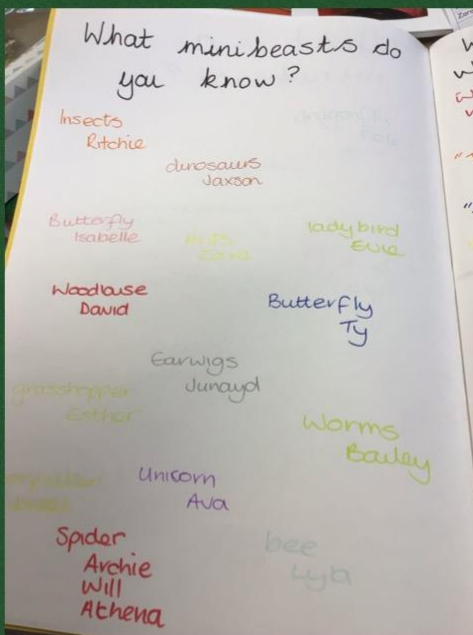 What minibeasts do
you know?
Insects
Ritchie
dragonfly
dinosaurs
Jaxson
Butterfly
Isabelle
ladybird
Evie
Woodlouse
David
Butterfly
Ty
Earwigs
Junayd
grasshopper
Esther
Worms
Bailey
Unicorn
Ava
Spider
Archie
Will
Athena
bee
Lyla